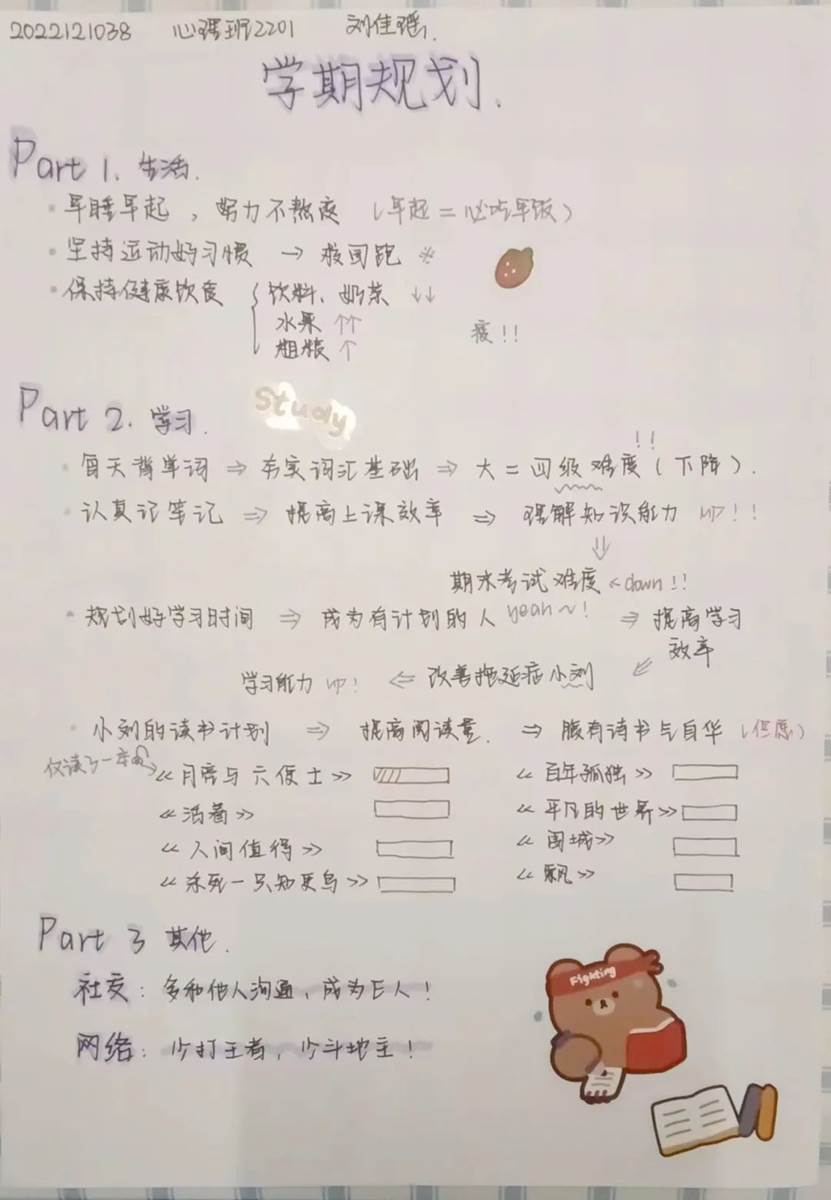 2022121038 心理班2201 刘佳瑶.
学期规划.
Part 1. 生活.
· 早睡早起，努力不熬夜（早起 = 必吃早饭）
· 坚持运动好习惯 → 夜间跑 ※
· 保持健康饮食 { 饮料、奶茶 ↓↓
水果 ↑↑
粗粮 ↑
瘦!!
Part 2. 学习.
Study
· 每天背单词 ⇒ 夯实词汇基础 ⇒ 大二四级难度（下降）. !!
· 认真记笔记 ⇒ 提高上课效率 ⇒ 理解知识能力 up!!
⇓
期末考试难度 down!!
· 规划好学习时间 ⇒ 成为有计划的人 yeah~! ⇒ 提高学习
效率
学习能力 up! ⇐ 改善拖延症小刘
· 小刘的读书计划 ⇒ 提高阅读量. ⇒ 腹有诗书气自华（但愿）
仅读了一本
《月亮与六便士》 《百年孤独》
《活着》 《平凡的世界》
《人间值得》 《围城》
《杀死一只知更鸟》 《飘》
Part 3 其他.
社交：多和他人沟通，成为E人！
网络：少打王者，少斗地主！
Fighting